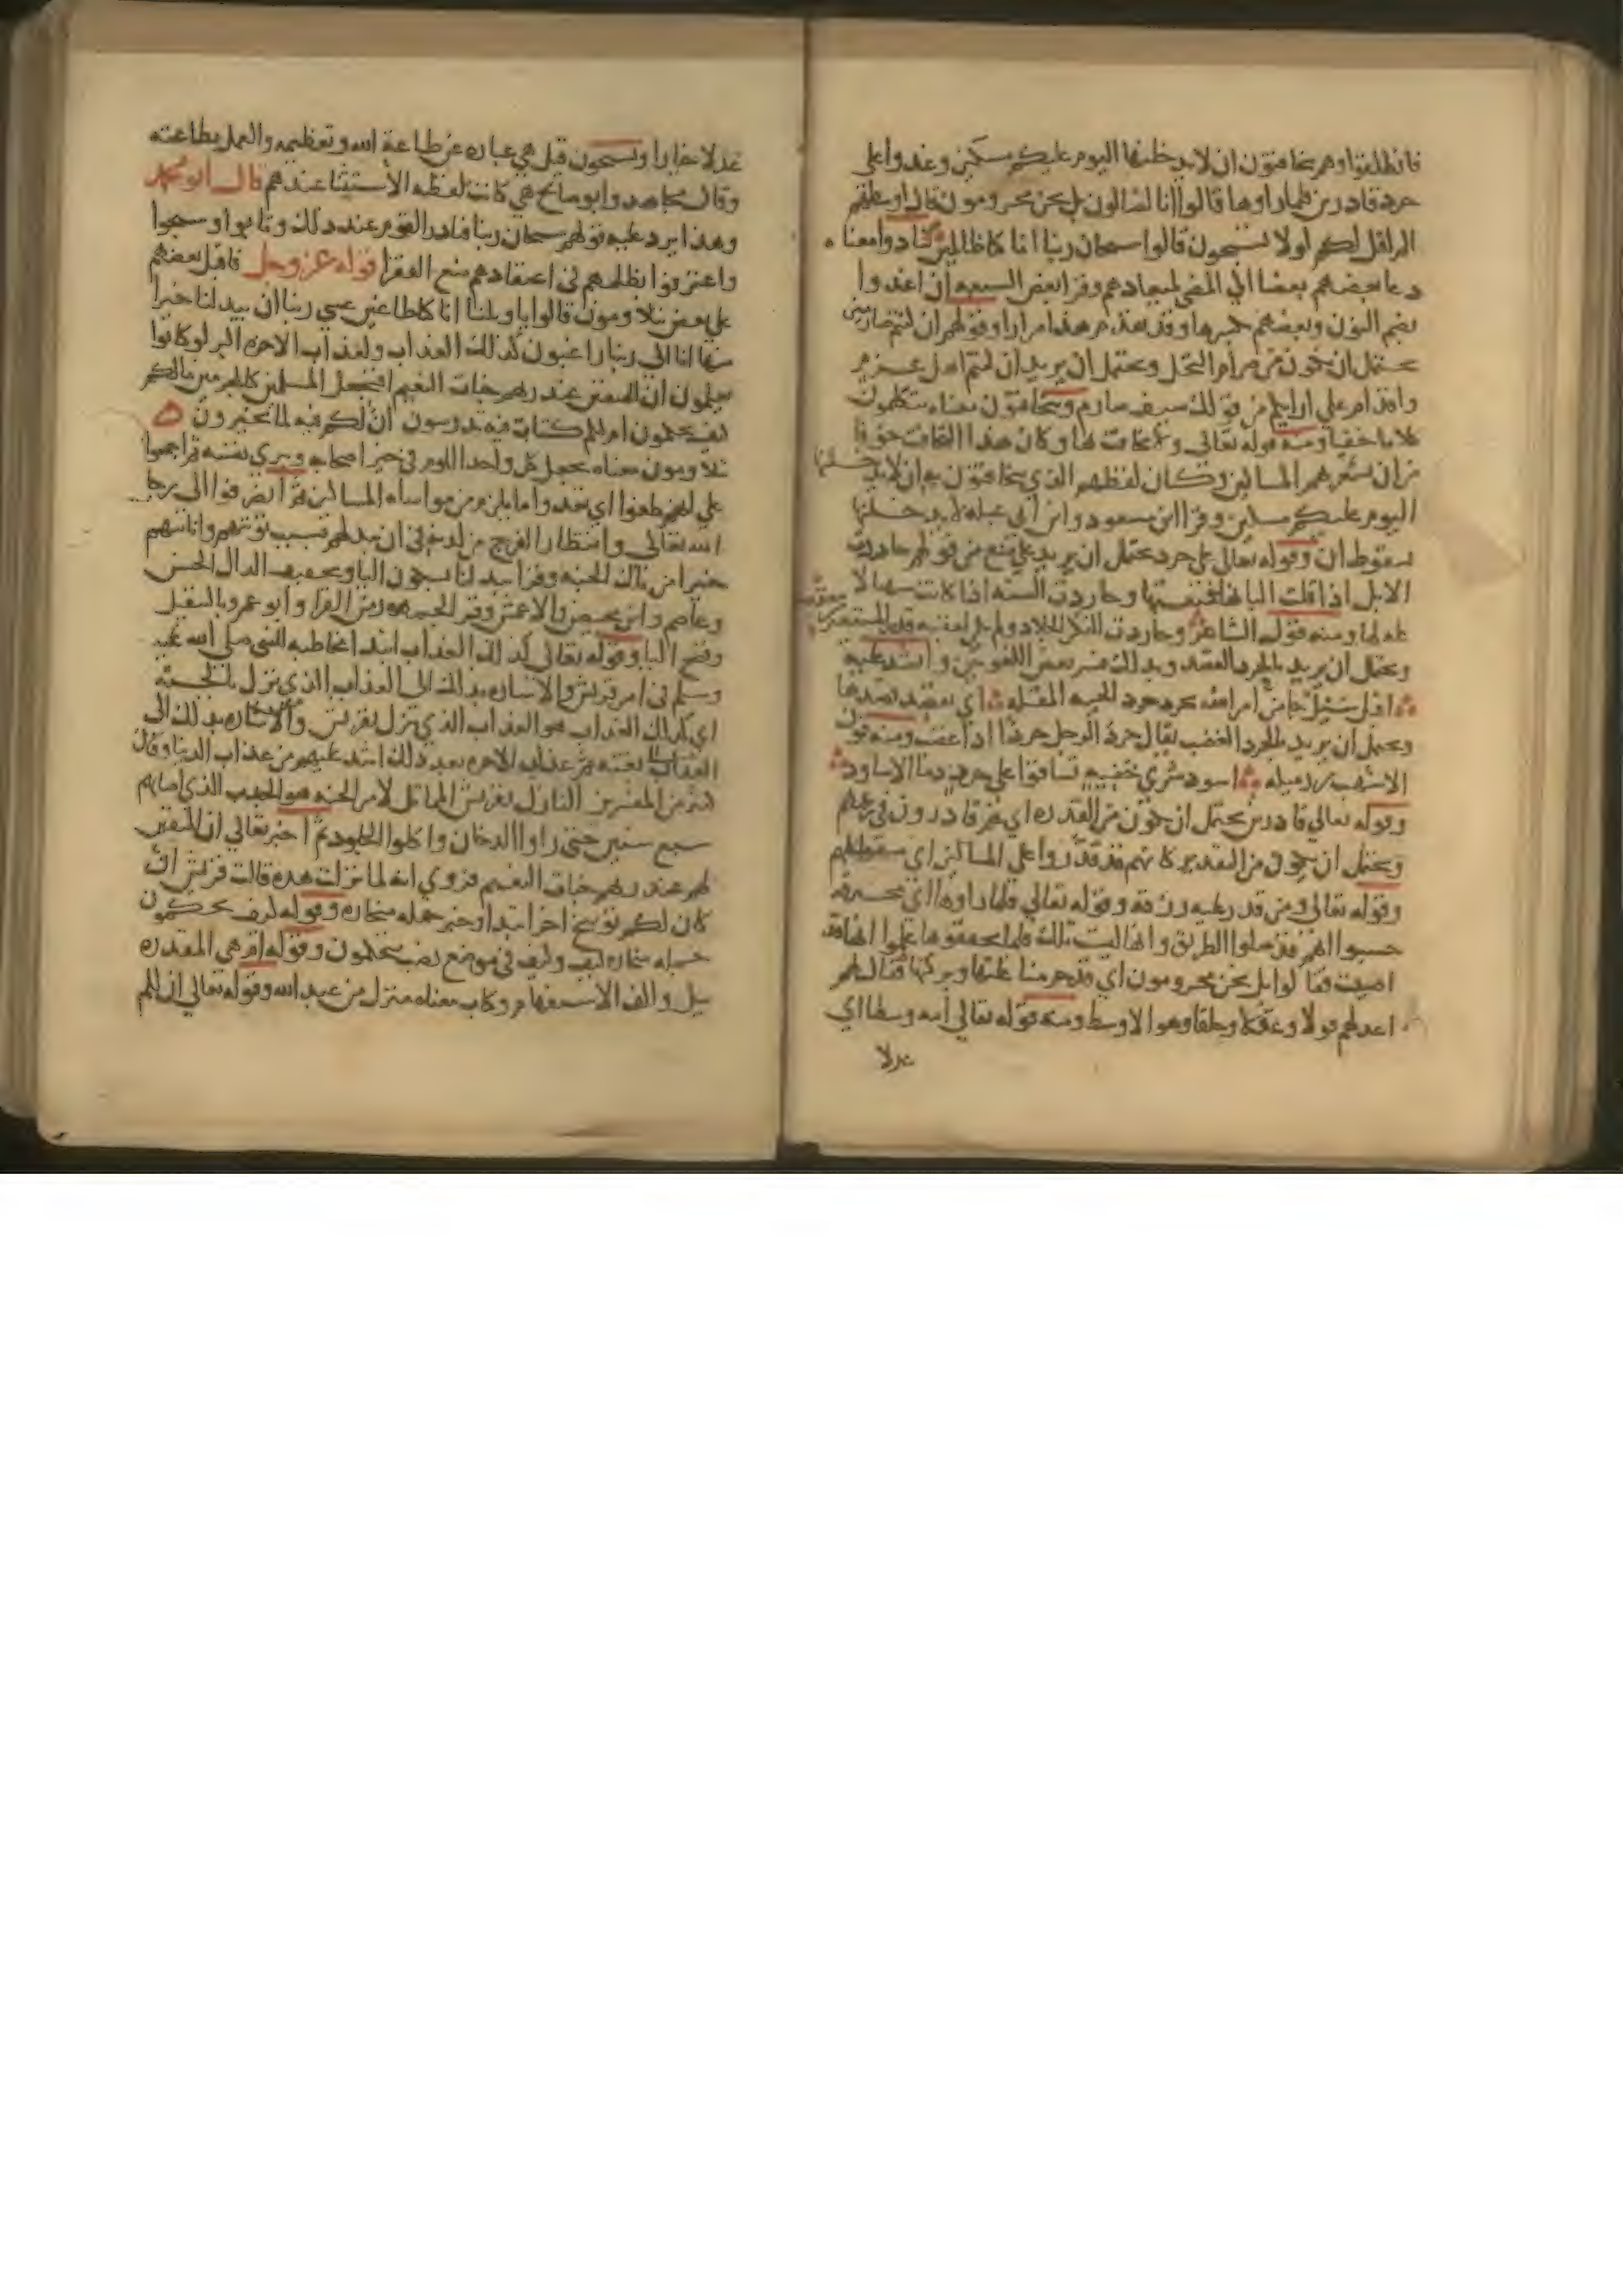 فانطلقوا وهم يتخافتون ان لا يدخلنها اليوم عليكم مسكين وغدوا على
حرد قادرين فلما راوها قالوا انا لضالون بل نحن محرومون قال اوسطهم
الم اقل لكم لولا تسبحون قالوا سبحان ربنا انا كنا ظالمين تنادوا معناه
دعا بعضهم بعضا الي المضي لميعادهم وقرا بعض السبعه ان اغدوا
بضم النون وبعضهم بكسرها وقد تقدم هذا مرارا وقولهم ان كنتم صارمين
يحتمل ان يكون من صرام النخل ويحتمل ان يريد ان كنتم اهل عزم
واقدام علي ارايكم من قولك سيف صارم ويتخافتون معناه يتكلمون
كلاما خفيا ومنه قوله تعالي ولا تخافت بها وكان هذا التخافت خوفا
من ان يشعر بهم المساكين وكان لفظهم الذي يتخافتون به ان لا يدخلنها
اليوم عليكم مسكين وقرا ابن مسعود وابن ابي عبله لا يدخلنها
بسقوط ان وقوله تعالي علي حرد يحتمل ان يريد علي منع من قولهم حاردت
الابل اذا قلت البانها فمنعتها وحاردت السنه اذا كانت شهبا لا
غله لها ومنه قول الشاعر وحاردت النكد الجلاد ولم يكن لعقبه قدر المستعيرين معقب
ويحتمل ان يريد بالحرد القصد وبذلك فسر بعض اللغويين وانشد عليه
اقبل سيل جا من امر الله يحرد حرد الجنه المغله اي يقصد قصدها
ويحتمل ان يريد بالحرد الغضب يقال حرد الرجل حردا اذا غضب ومنه قول
الاشهب بن رميله اسود شري خفيه تساقوا علي حرد دما الاساود
وقوله تعالي قادرين يحتمل ان يكون من القدره اي هم قادرون في زعمهم
ويحتمل ان يكون من التقدير كانهم قد قدروا علي المساكين اي
وقوله تعالي ومن قدر عليه رزقه وقوله تعالي فلما راوها اي محترقه
حسبوا انهم قد ضلوا الطريق وانها ليست تلك فلما تحققوها علموا انها قد
اصيبت فقالوا بل نحن محرومون اي قد حرمنا غلتها وبركتها فقال لهم
اعدلهم قولا وعقلا وخلقا وهو الاوسط ومنه قوله تعالي امه وسطا اي
عدلا
عدلا خيارا وتسبحون قيل هي عباره عن طاعة الله وتعظيمه والعمل بطاعته
وقال مجاهد وابو صالح هي كانت لفظه الاستثنا عندهم قال ابو محمد
وهذا يرد عليه قولهم سبحان ربنا فبادر القوم عند ذلك وتابوا وسبحوا
واعترفوا بظلمهم في اعتقادهم منع الفقرا قوله عز وجل فاقبل بعضهم
علي بعض يتلاومون قالوا ياويلنا انا كنا طاغين عسي ربنا ان يبدلنا خيرا
منها انا الي ربنا راغبون كذلك العذاب ولعذاب الاخره اكبر لو كانوا
يعلمون ان للمتقين عند ربهم جنات النعيم افنجعل المسلمين كالمجرمين مالكم
كيف تحكمون ام لكم كتاب فيه تدرسون ان لكم فيه لما تخيرون
يتلاومون معناه يجعل كل واحد اللوم في حيز صاحبه ويبري نفسه ثم اجمعوا
علي انهم طغوا اي تعدوا ما يلزم من مواساه المساكين ثم انصرفوا الي رجا
الله تعالي وانتظار الفرج من لدنه في ان يبدلهم بسبب توبتهم وانابتهم
خيرا من تلك الجنه وقرا يبدلنا بسكون البا وتخفيف الدال الحسن
وعاصم وابن محيصن والاعمش وقرا الجمهور من القرا وابو عمرو بالتثقيل
وفتح البا وقوله تعالي كذلك العذاب ابتدا مخاطبه للنبي صلي الله عليه
وسلم في امر قريش والاشاره بذلك الي العذاب الذي نزل بالجنه
اي كذلك العذاب هو العذاب الذي ينزل بقريش والاشاره بذلك الي
العذاب بغته ثم عذاب الاخره بعد ذلك اشد عليهم من عذاب الدنيا وقال
كثير من المفسرين النازل بقريش المماثل لامر الجنه هو الجدب الذي اصابهم
سبع سنين حتي راوا الدخان واكلوا الجلود ثم اخبر تعالي ان للمتقين
لهم عند ربهم جنات النعيم فروي انه لما نزلت هذه قالت قريش ان
كان لكم توبيخ اخر ابتدا وخبر جمله منحازه وقوله كيف تحكمون
جمله منحازه كيف وكيف في موضع نصب بتحكمون وقوله ام هي المقدره
ببل والف الاستفهام وكتاب معناه منزل من عند الله وقوله تعالي ان لكم